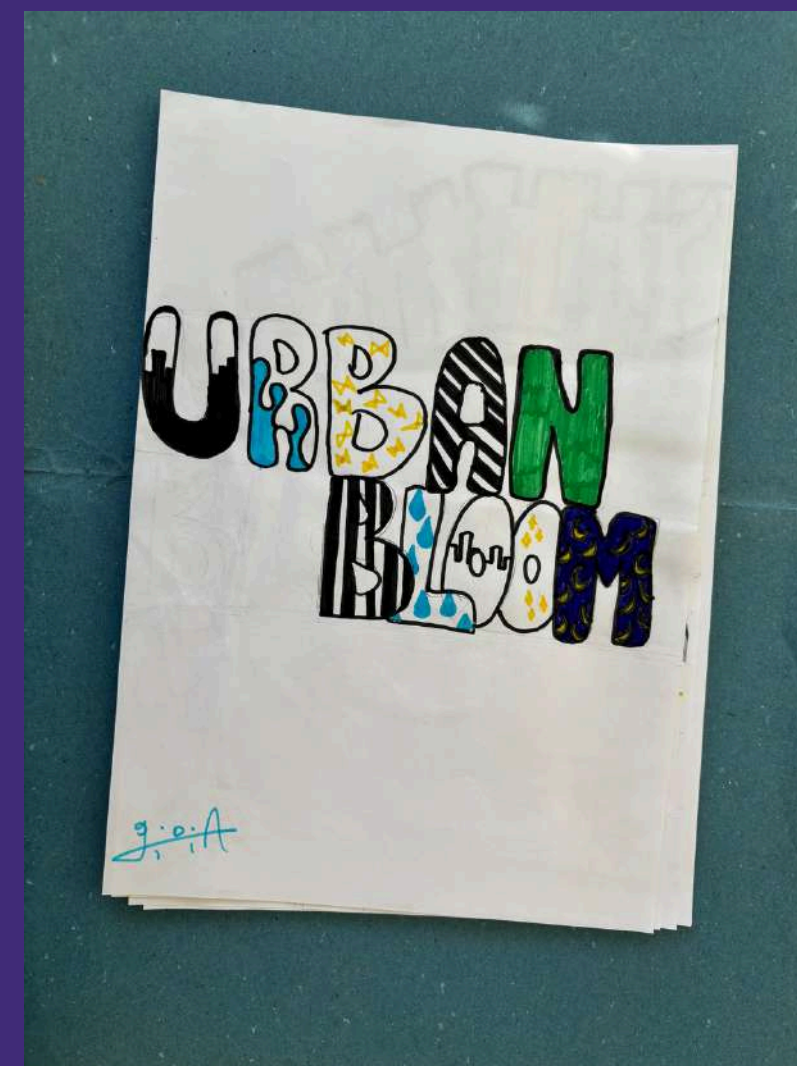 URBAN
BLOOM
g.o.A